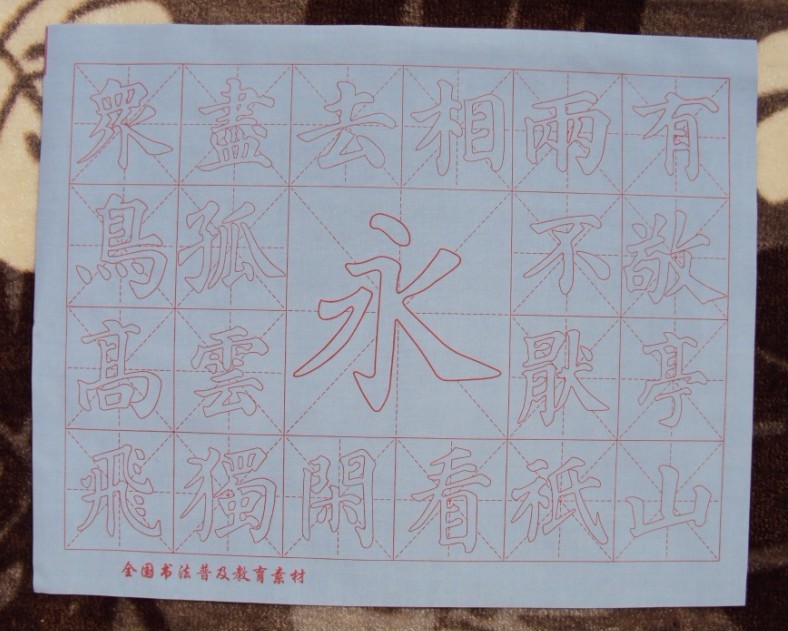 眾盡去相兩有
鳥孤永不敬
髙雲猒亭
飛獨閑看祇山
全国书法普及教育素材